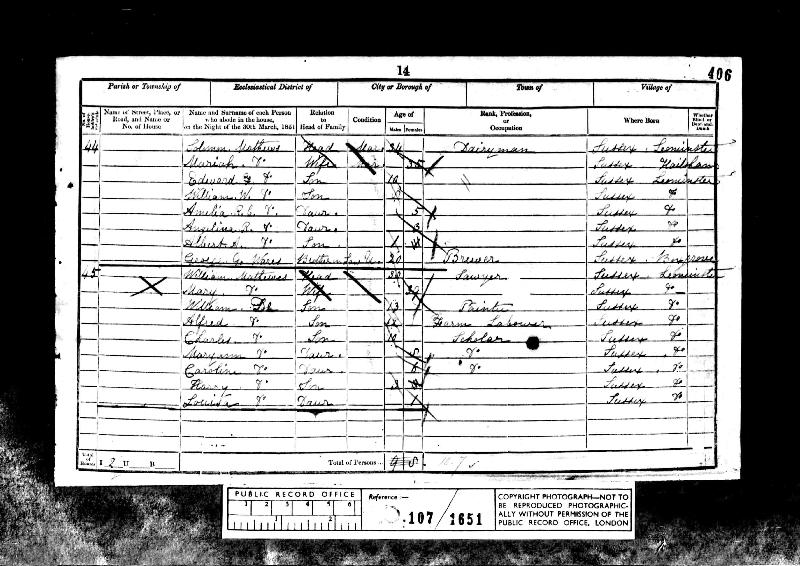 14
406
Parish or Township of Ecclesiastical District of City or Borough of Town of Village of
Name of Street, Place, or Road, and Name or No. of House
Name and Surname of each Person who abode in the house, on the Night of the 30th March, 1851
Relation to Head of Family
Condition
Age of
Males Females
Rank, Profession, or Occupation
Where Born
Whether Blind or Deaf-and-Dumb
44 Mathews Head Mar 34 Dairyman Sussex Leominster
Mariah Do Wife Mar 35 Sussex Hailsham
Edward Do Son 10 Sussex Leominster
William W. Do Son Sussex Do
Amelia R. E. Do Daur. 5 Sussex Do
Angelina R. Do Daur. 3 Sussex Do
Albert A. Do Son 1 Sussex Do
George Wares Brother in Law Un. 20 Brewer Sussex Boxgrove
45 William Mathews Head 39 Sawyer Sussex Leominster
Mary Do Wife 39 Sussex Do
William Do Son 13 Painter Sussex Do
Alfred Do Son 12 Farm Labourer Sussex Do
Charles Do Son 10 Scholar Sussex Do
Maryann Do Daur. 8 Do Sussex Do
Caroline Do Daur Do Sussex Do
Harry Do Son 3 Sussex Do
Louisa Do Daur Sussex Do
Total of Houses I 2 U B Total of Persons 9 8
PUBLIC RECORD OFFICE
1 2 3 4 5 6
1 2
Reference:—
107 / 1651
COPYRIGHT PHOTOGRAPH—NOT TO
BE REPRODUCED PHOTOGRAPHIC-
ALLY WITHOUT PERMISSION OF THE
PUBLIC RECORD OFFICE, LONDON